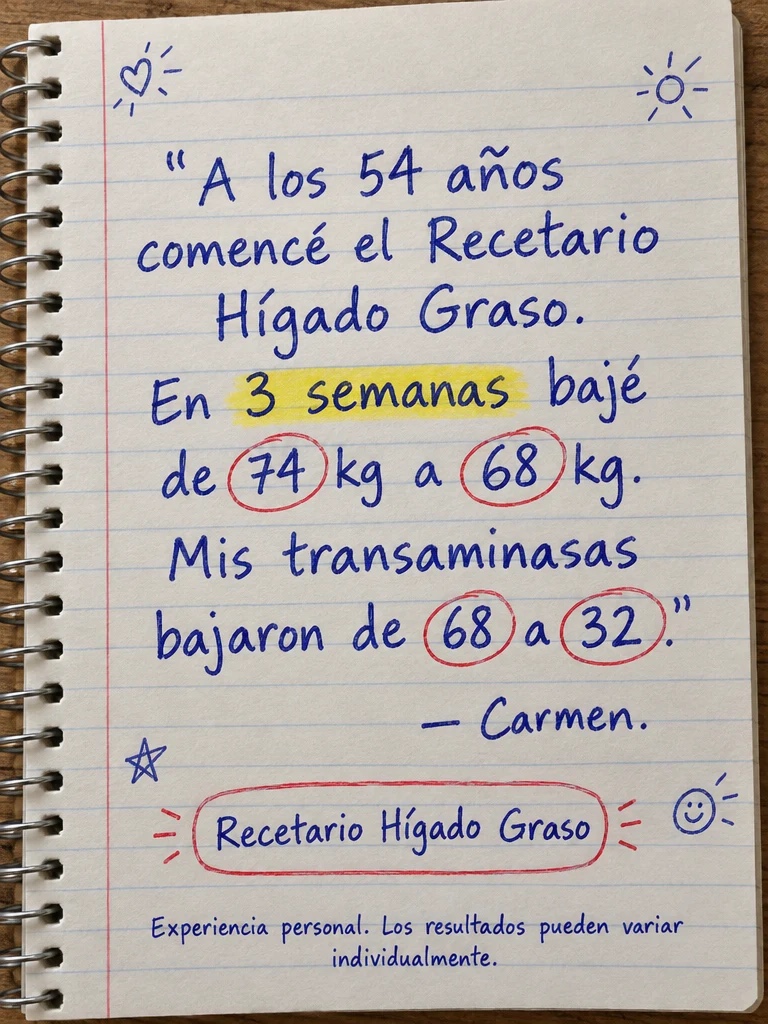 “A los 54 años
comencé el Recetario
Hígado Graso.
En 3 semanas bajé
de 74 kg a 68 kg.
Mis transaminasas
bajaron de 68 a 32.”
— Carmen.
Recetario Hígado Graso
Experiencia personal. Los resultados pueden variar
individualmente.